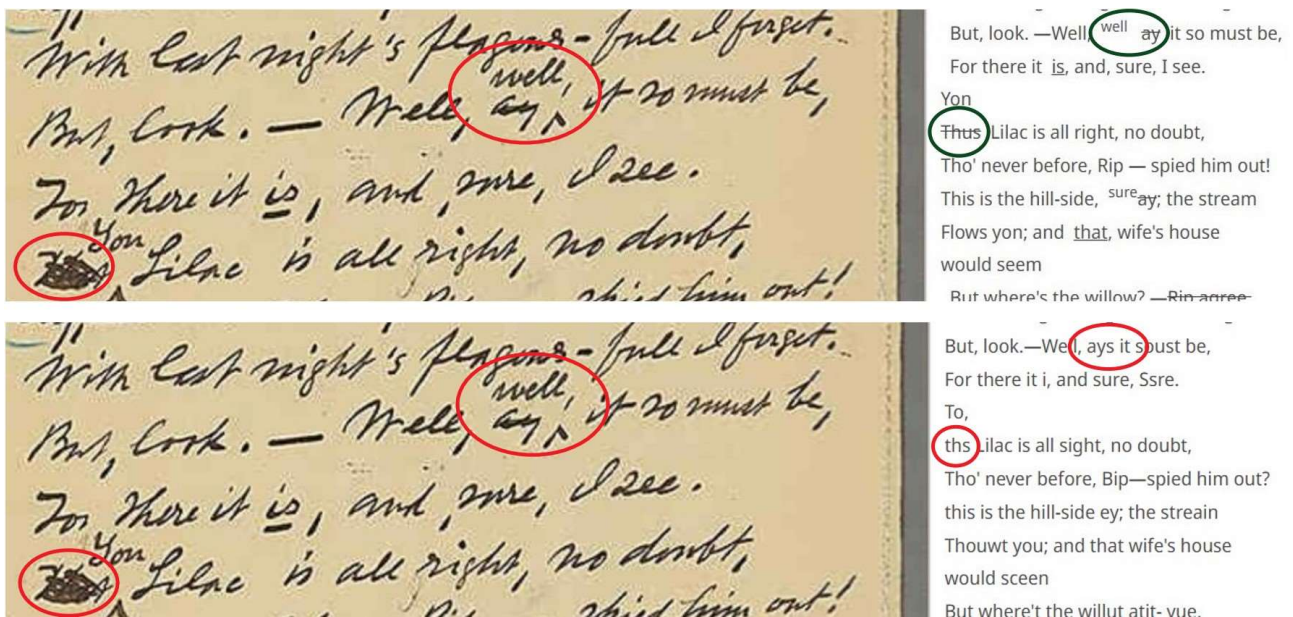 With last night's flagons-full I forget.
But, look. — Well, ay, well, it so must be,
For there it is, and, sure, I see.
Yon
Lilac is all right, no doubt,
spied him out!
But, look. —Well, well ay it so must be,
For there it is, and, sure, I see.
Yon
Thus Lilac is all right, no doubt,
Tho' never before, Rip — spied him out!
This is the hill-side, sure ay; the stream
Flows yon; and that, wife's house
would seem
But where's the willow? —Rip agree
With last night's flagons-full I forget.
But, look. — Well, ay, well, it so must be,
For there it is, and, sure, I see.
Yon
Lilac is all right, no doubt,
spied him out!
But, look.—Well, ays it spust be,
For there it i, and sure, Ssre.
To,
ths Lilac is all sight, no doubt,
Tho' never before, Bip—spied him out?
this is the hill-side ey; the streain
Thouwt you; and that wife's house
would sceen
But where't the willut atit- vue.